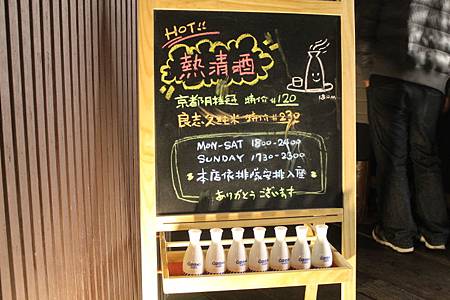 HOT!!
熱清酒
180ml
京都月桂冠 特价 $120
良志久純米 特价 $230
MON-SAT 1800-2400
SUNDAY 1730-2300
本店依排隊安排入座
ありがとうございます